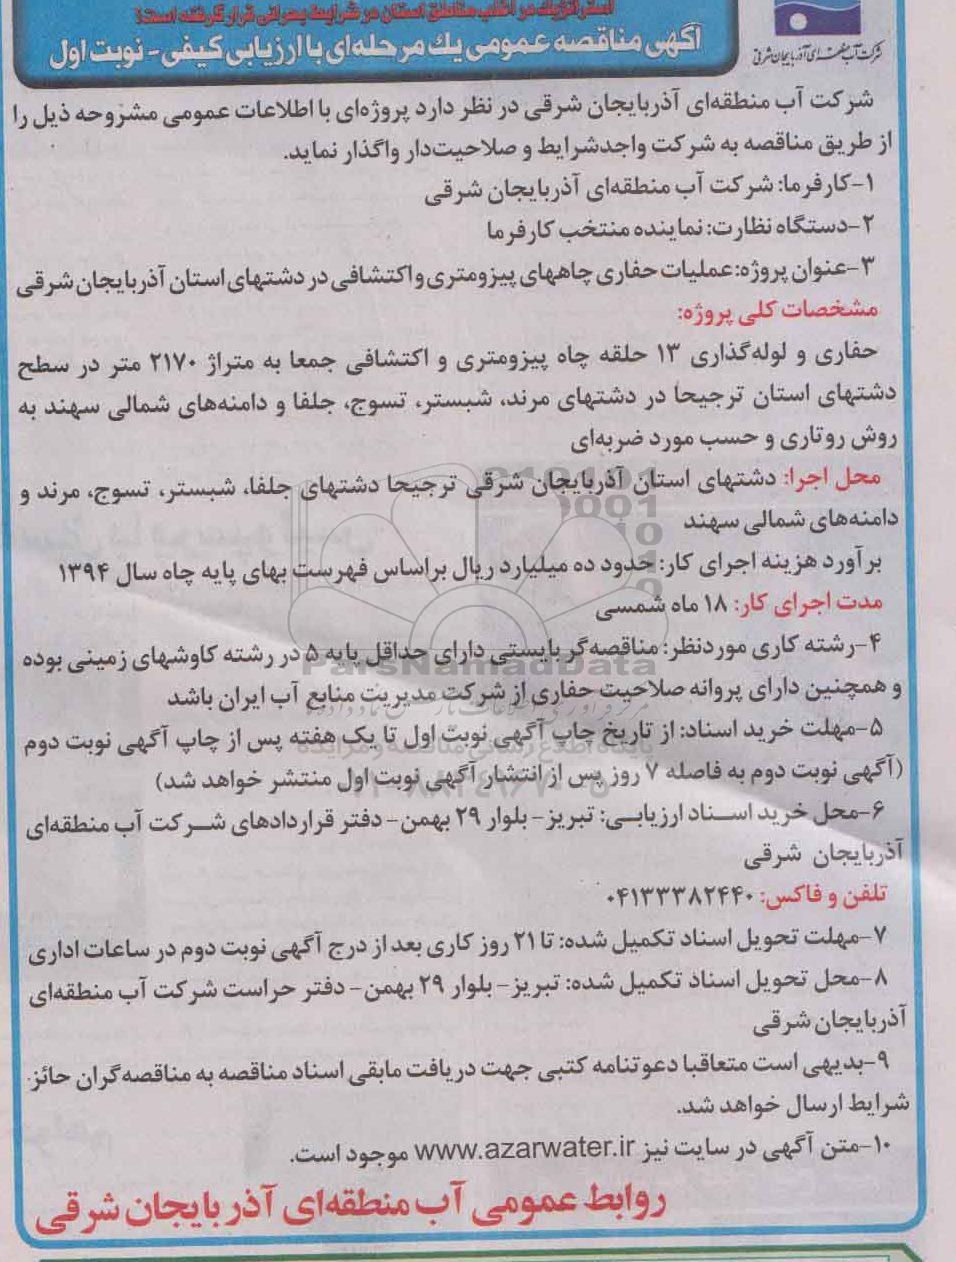 استراتژیک در اغلب مناطق استان در شرایط بحرانی قرار گرفته است!
آگهی مناقصه عمومی یک مرحله‌ای با ارزیابی کیفی- نوبت اول
شرکت آب منطقه‌ای آذربایجان شرقی
شرکت آب منطقه‌ای آذربایجان شرقی در نظر دارد پروژه‌ای با اطلاعات عمومی مشروحه ذیل را
از طریق مناقصه به شرکت واجدشرایط و صلاحیت‌دار واگذار نماید.
۱-کارفرما: شرکت آب منطقه‌ای آذربایجان شرقی
۲-دستگاه نظارت: نماینده منتخب کارفرما
۳-عنوان پروژه: عملیات حفاری چاههای پیزومتری و اکتشافی در دشتهای استان آذربایجان شرقی
مشخصات کلی پروژه:
حفاری و لوله‌گذاری ۱۳ حلقه چاه پیزومتری و اکتشافی جمعا به متراژ ۲۱۷۰ متر در سطح
دشتهای استان ترجیحا در دشتهای مرند، شبستر، تسوج، جلفا و دامنه‌های شمالی سهند به
روش روتاری و حسب مورد ضربه‌ای
محل اجرا: دشتهای استان آذربایجان شرقی ترجیحا دشتهای جلفا، شبستر، تسوج، مرند و
دامنه‌های شمالی سهند
برآورد هزینه اجرای کار: حدود ده میلیارد ریال براساس فهرست بهای پایه چاه سال ۱۳۹۴
مدت اجرای کار: ۱۸ ماه شمسی
۴-رشته کاری موردنظر: مناقصه‌گر بایستی دارای حداقل پایه ۵ در رشته کاوشهای زمینی بوده
ParsNamadData
و همچنین دارای پروانه صلاحیت حفاری از شرکت مدیریت منابع آب ایران باشد
۵-مهلت خرید اسناد: از تاریخ چاپ آگهی نوبت اول تا یک هفته پس از چاپ آگهی نوبت دوم
پایگاه اطلاع رسانی مناقصه و مزایده
(آگهی نوبت دوم به فاصله ۷ روز پس از انتشار آگهی نوبت اول منتشر خواهد شد)
۶-محل خرید اسناد ارزیابی: تبریز- بلوار ۲۹ بهمن- دفتر قراردادهای شرکت آب منطقه‌ای
آذربایجان شرقی
تلفن و فاکس: ۰۴۱۳۳۳۸۲۴۴۰
۷-مهلت تحویل اسناد تکمیل شده: تا ۲۱ روز کاری بعد از درج آگهی نوبت دوم در ساعات اداری
۸-محل تحویل اسناد تکمیل شده: تبریز- بلوار ۲۹ بهمن- دفتر حراست شرکت آب منطقه‌ای
آذربایجان شرقی
۹-بدیهی است متعاقبا دعوتنامه کتبی جهت دریافت مابقی اسناد مناقصه به مناقصه‌گران حائز
شرایط ارسال خواهد شد.
۱۰-متن آگهی در سایت نیز www.azarwater.ir موجود است.
روابط عمومی آب منطقه‌ای آذربایجان شرقی